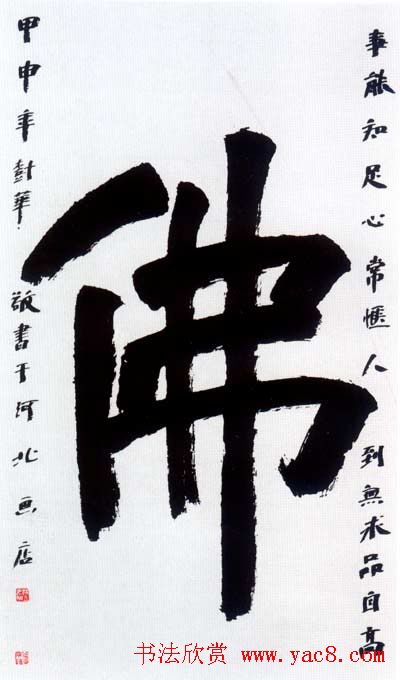 事能知足心常愜人到無求品自高
佛
甲申年華敬書于河北画店
书法欣赏 www.yac8.com